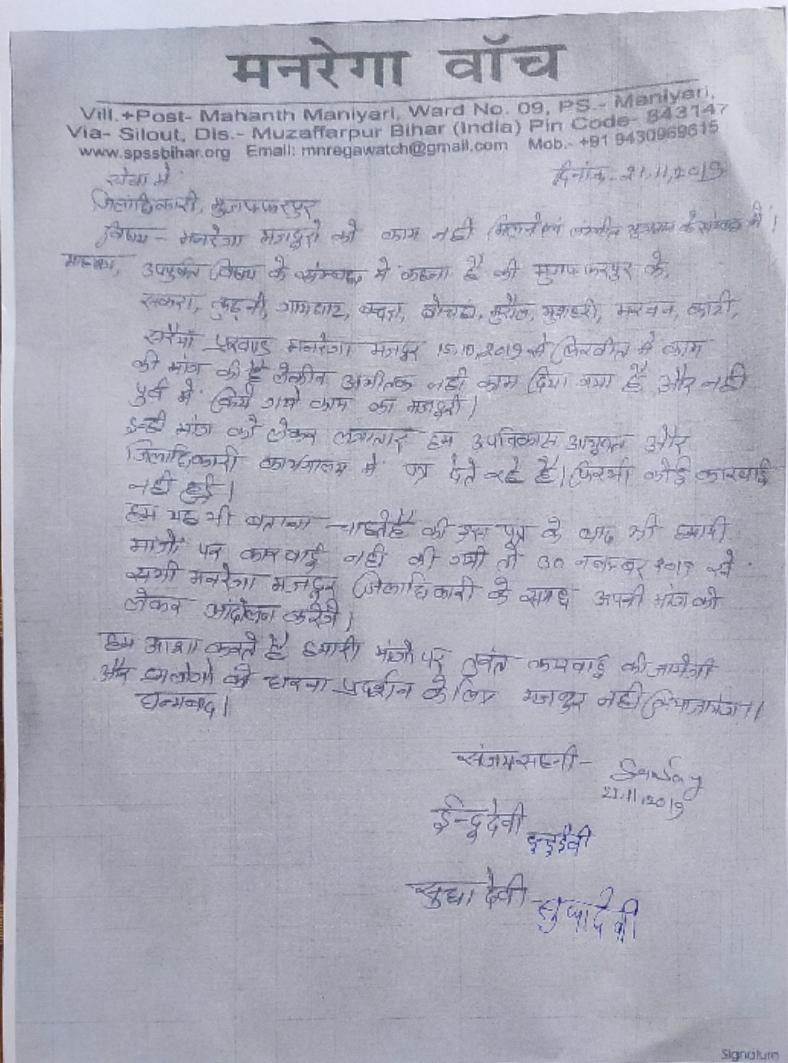 मनरेगा वॉच
Vill.+Post- Mahanth Maniyari, Ward No. 09, PS.- Maniyari,
Via- Silout, Dis.- Muzaffarpur Bihar (India) Pin Code- 843147
www.spssbihar.org Email: mnregawatch@gmail.com Mob.- +91 9430969615
सेवा में
दिनांक-21.11.2019
जिलाधिकारी, मुजफ्फरपुर
विषय - मनरेगा मजदुरो को काम नही मिलने एवं लंबीत भुगतान के संबंध में।
महाशय, उपर्युक्त विषय के संम्बन्ध मे कहना है की मुजफ्फरपुर के,
सकरा, कुढ़नी, गायघाट, बोचहां, मुरौल, मुशहरी, मरवन, कांटी,
सरैया प्रखण्ड मनरेगा मजदुर 15.10.2019 से में काम
की मांग की है लेकीन अभीतक नही काम दिया गया है और नही
पुर्व में किये गये काम का मजदुरी।
इन्ही मांग को लेकर लगातार हम उपविकास आयुक्त और
जिलाधिकारी कार्यालय मे पत्र देते रहे है। फिरभी कोई कारवाई
नही हुई।
हम यह भी बताना चाहते है की इस पत्र के बाद भी हमारी
मांगो पर कारवाई नही की गयी तो 30 नवम्बर 2019 से
सभी मनरेगा मजदुर जिलाधिकारी के समक्ष अपनी मांग को
लेकर आंदोलन करेंगे।
हम आशा करते है हमारी मांगो पर तुरंत कारवाई की जायेगी
और हमलोगो को धरना प्रदर्शन के लिए मजबुर नही किया जायेगा।
धन्यवाद।
संजय सहनी- Sanjay
21.11.2019
ईन्दू देवी इन्दुदेवी
सुधा देवी सुधा देवी
Signature